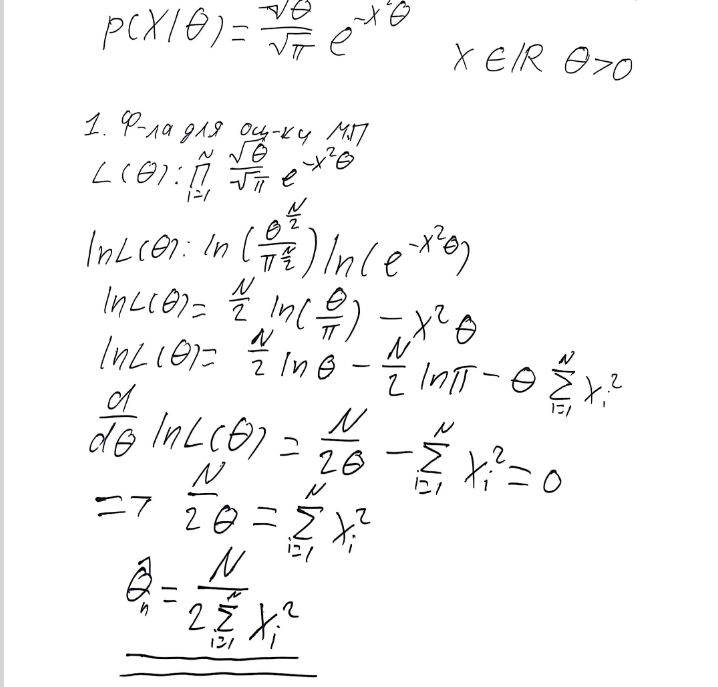 P(X|θ) = √θ/√π e^{-x²θ} X ∈ ℝ θ>0
1. Ф-ла для оц-ку МП
L(θ): ∏_{i=1}^{N} √θ/√π e^{-x²θ}
lnL(θ): ln(θ^{N/2}/π^{N/2}) ln(e^{-x²θ})
lnL(θ) = N/2 ln(θ/π) - x²θ
lnL(θ) = N/2 lnθ - N/2 lnπ - θ ∑_{i=1}^{N} x_i²
d/dθ lnL(θ) = N/2θ - ∑_{i=1}^{N} x_i² = 0
=> N/2θ = ∑_{i=1}^{N} x_i²
θ̂_n = N/2∑_{i=1}^{N} x_i²